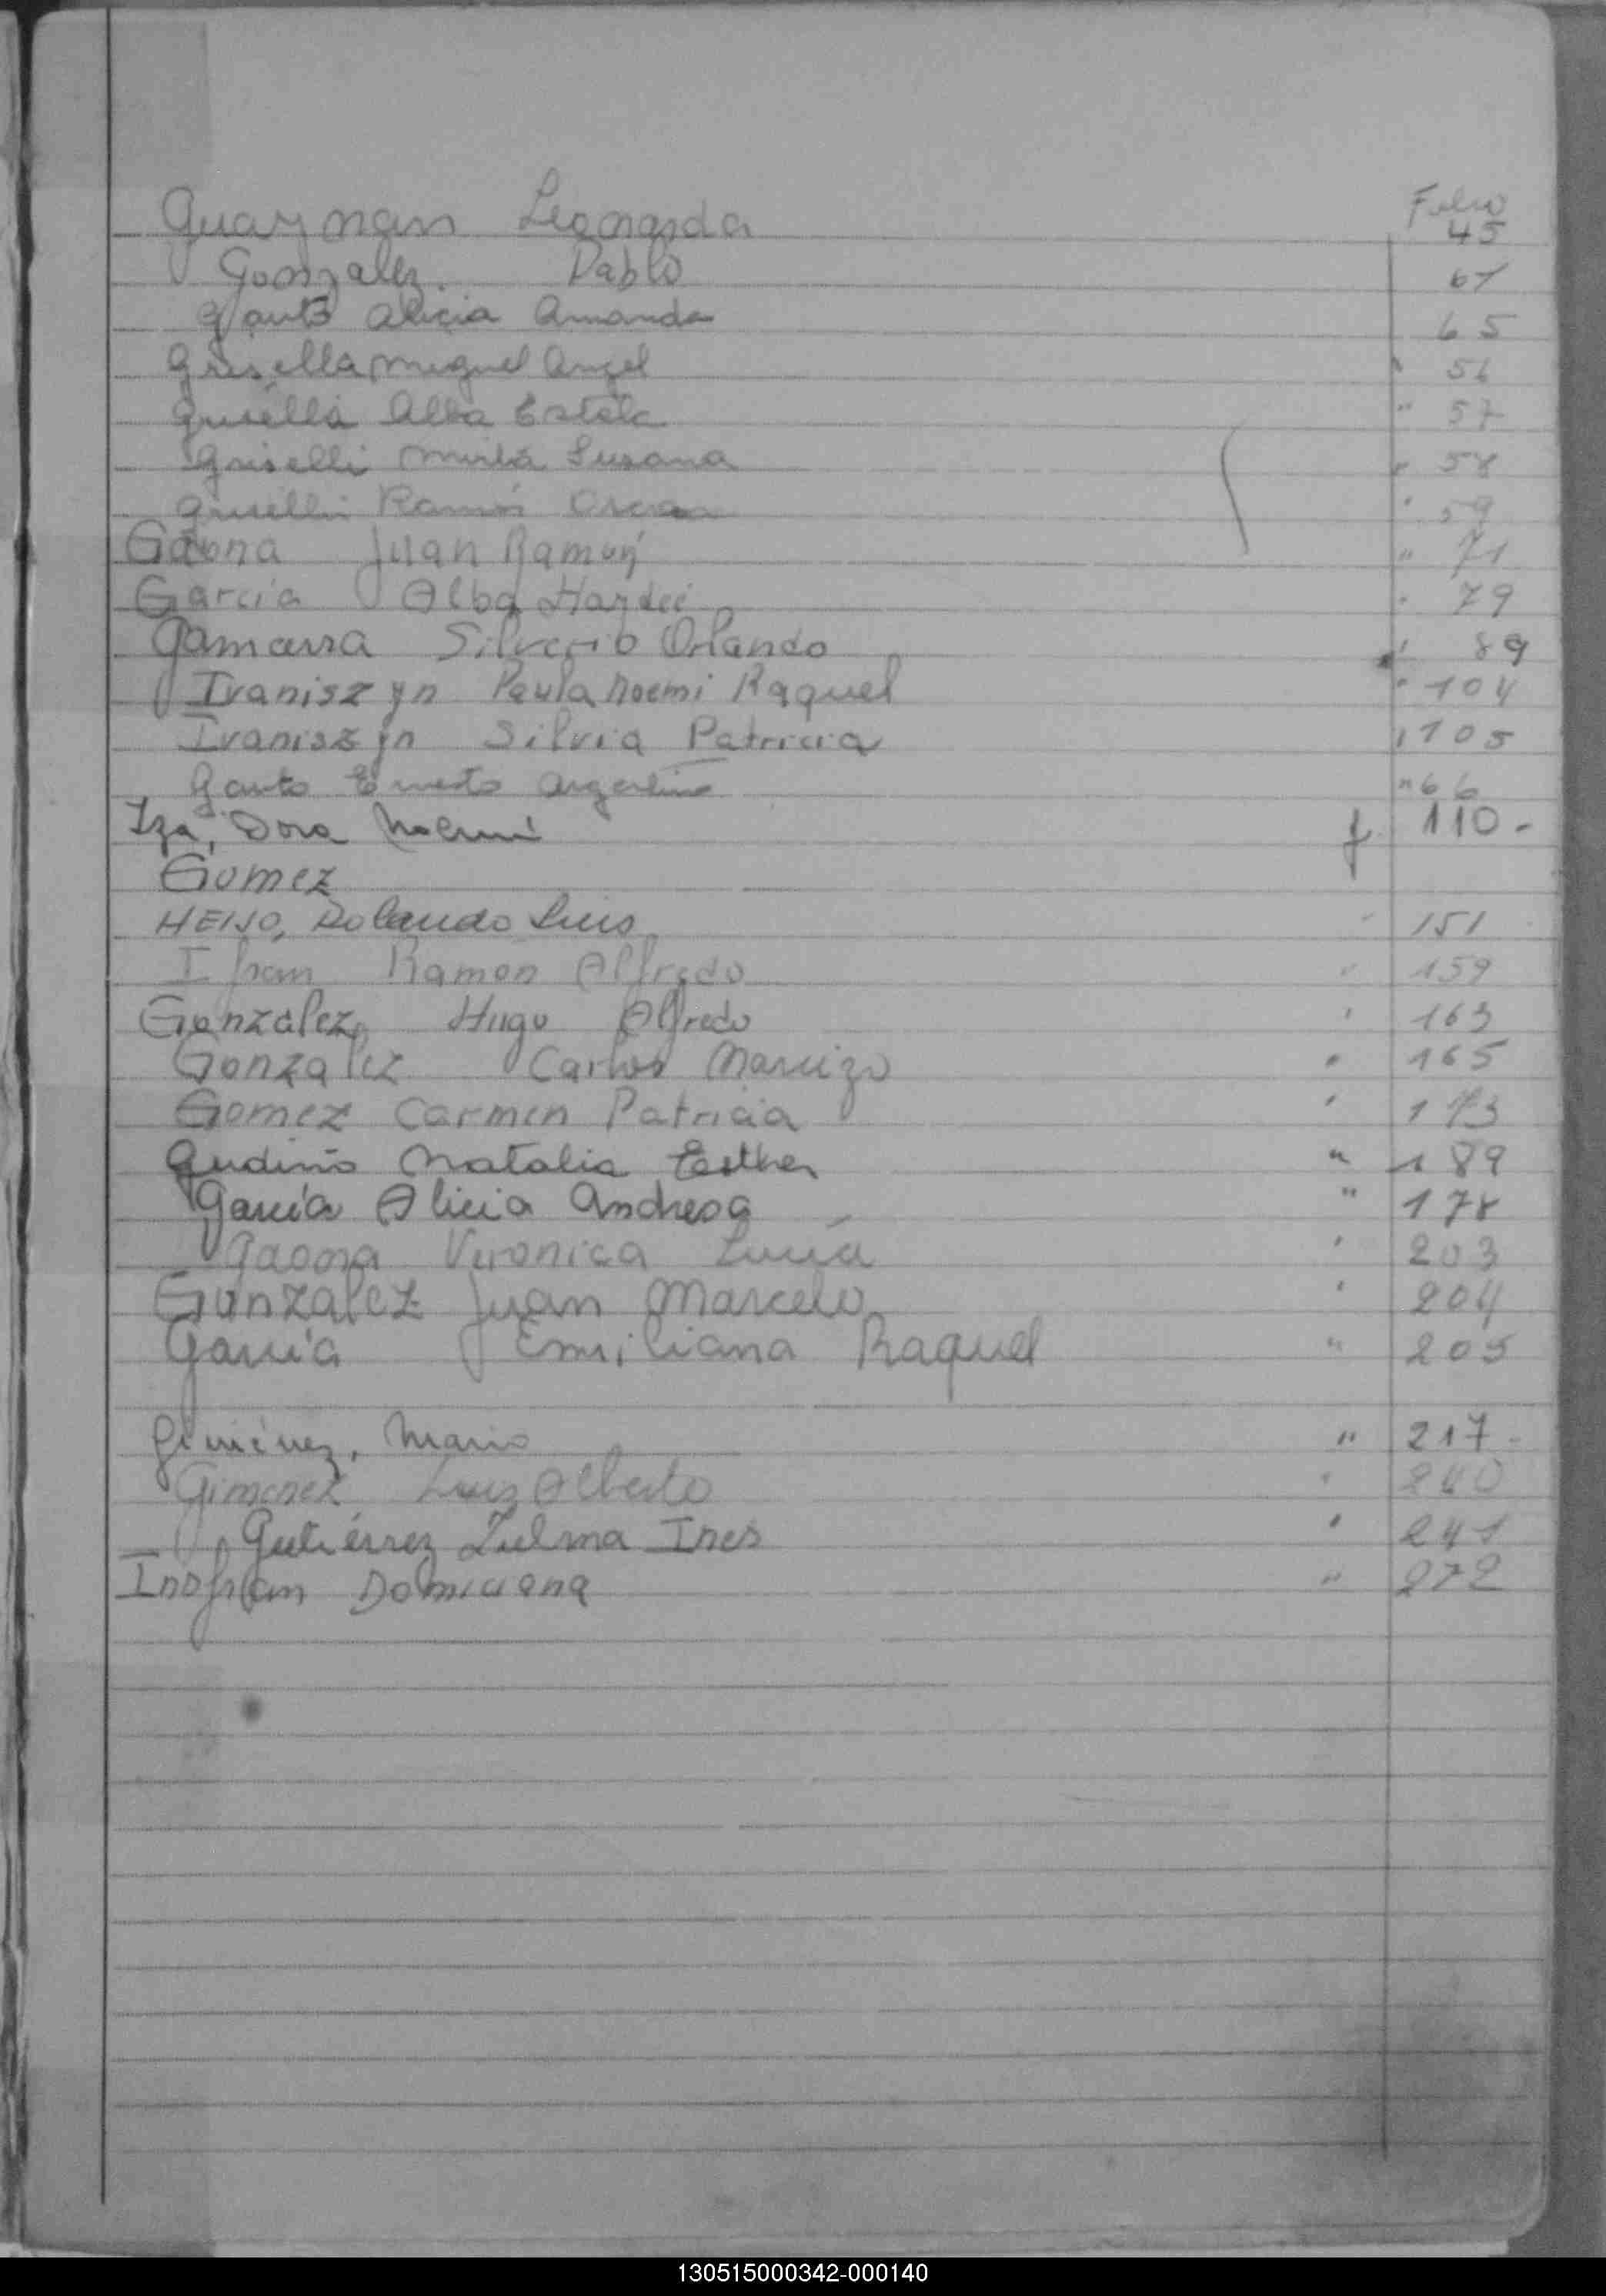 Folio
Guaynan Leonarda 45
Gonzalez. Pablo 61
Gauto Alicia Amanda 65
Grisella Miguel Angel " 56
Grisella Alba Estela " 57
Griselli Mirta Susana " 58
Griselli Ramón Oscar " 59
Gaona Juan Ramon " 71
Garcia Alba Haydee " 79
Gamarra Silverio Orlando " 89
Ivaniszyn Paula Noemi Raquel " 104
Ivaniszyn Silvia Patricia " 105
Gauto Ernesto Argentino " 66
Iza, Dora Noemi f. 110-
Gomez
HEIJO, Rolando Luis " 151
Ifran Ramon Alfredo " 159
Gonzalez Hugo Alfredo " 163
Gonzalez Carlos Narcizo " 165
Gomez Carmen Patricia " 173
Gudiño Natalia Esther " 189
García Alicia Andresa " 178
Gaona Veronica Lucía " 203
Gonzalez Juan Marcelo " 204
García Emiliana Raquel " 205
Giménez, Mario " 217-
Gimenez Luis Alberto " 240
Gutiérrez Zulma Ines " 241
Insfran Domiciana " 272
130515000342-000140